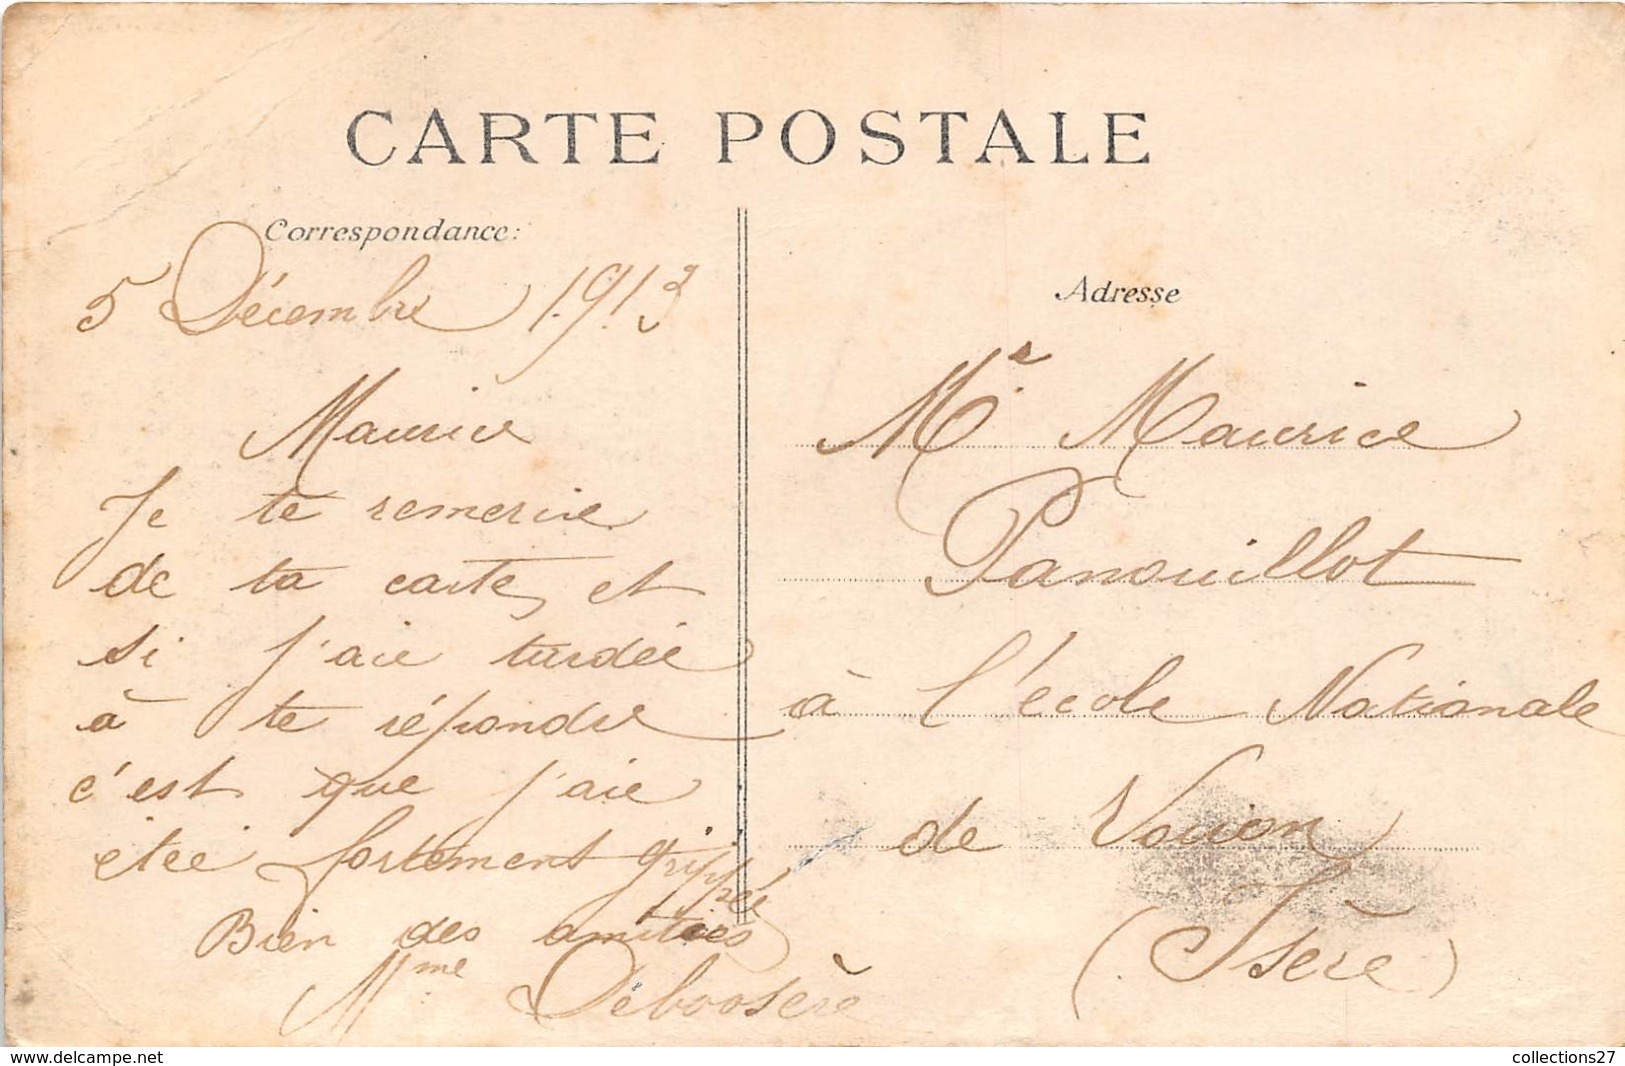 CARTE POSTALE
Correspondance:
5 Décembre 1913
Maurice
Je te remercie
de ta carte, et
si j'aie tardée
à te répondre
c'est que j'aie
étée fortement grippée
Bien des amitiés
Mme Deboosère
Adresse
Mr. Maurice
Panouillot
à l'école Nationale
de Voiron
(Isère)
delcampe.net
collections27